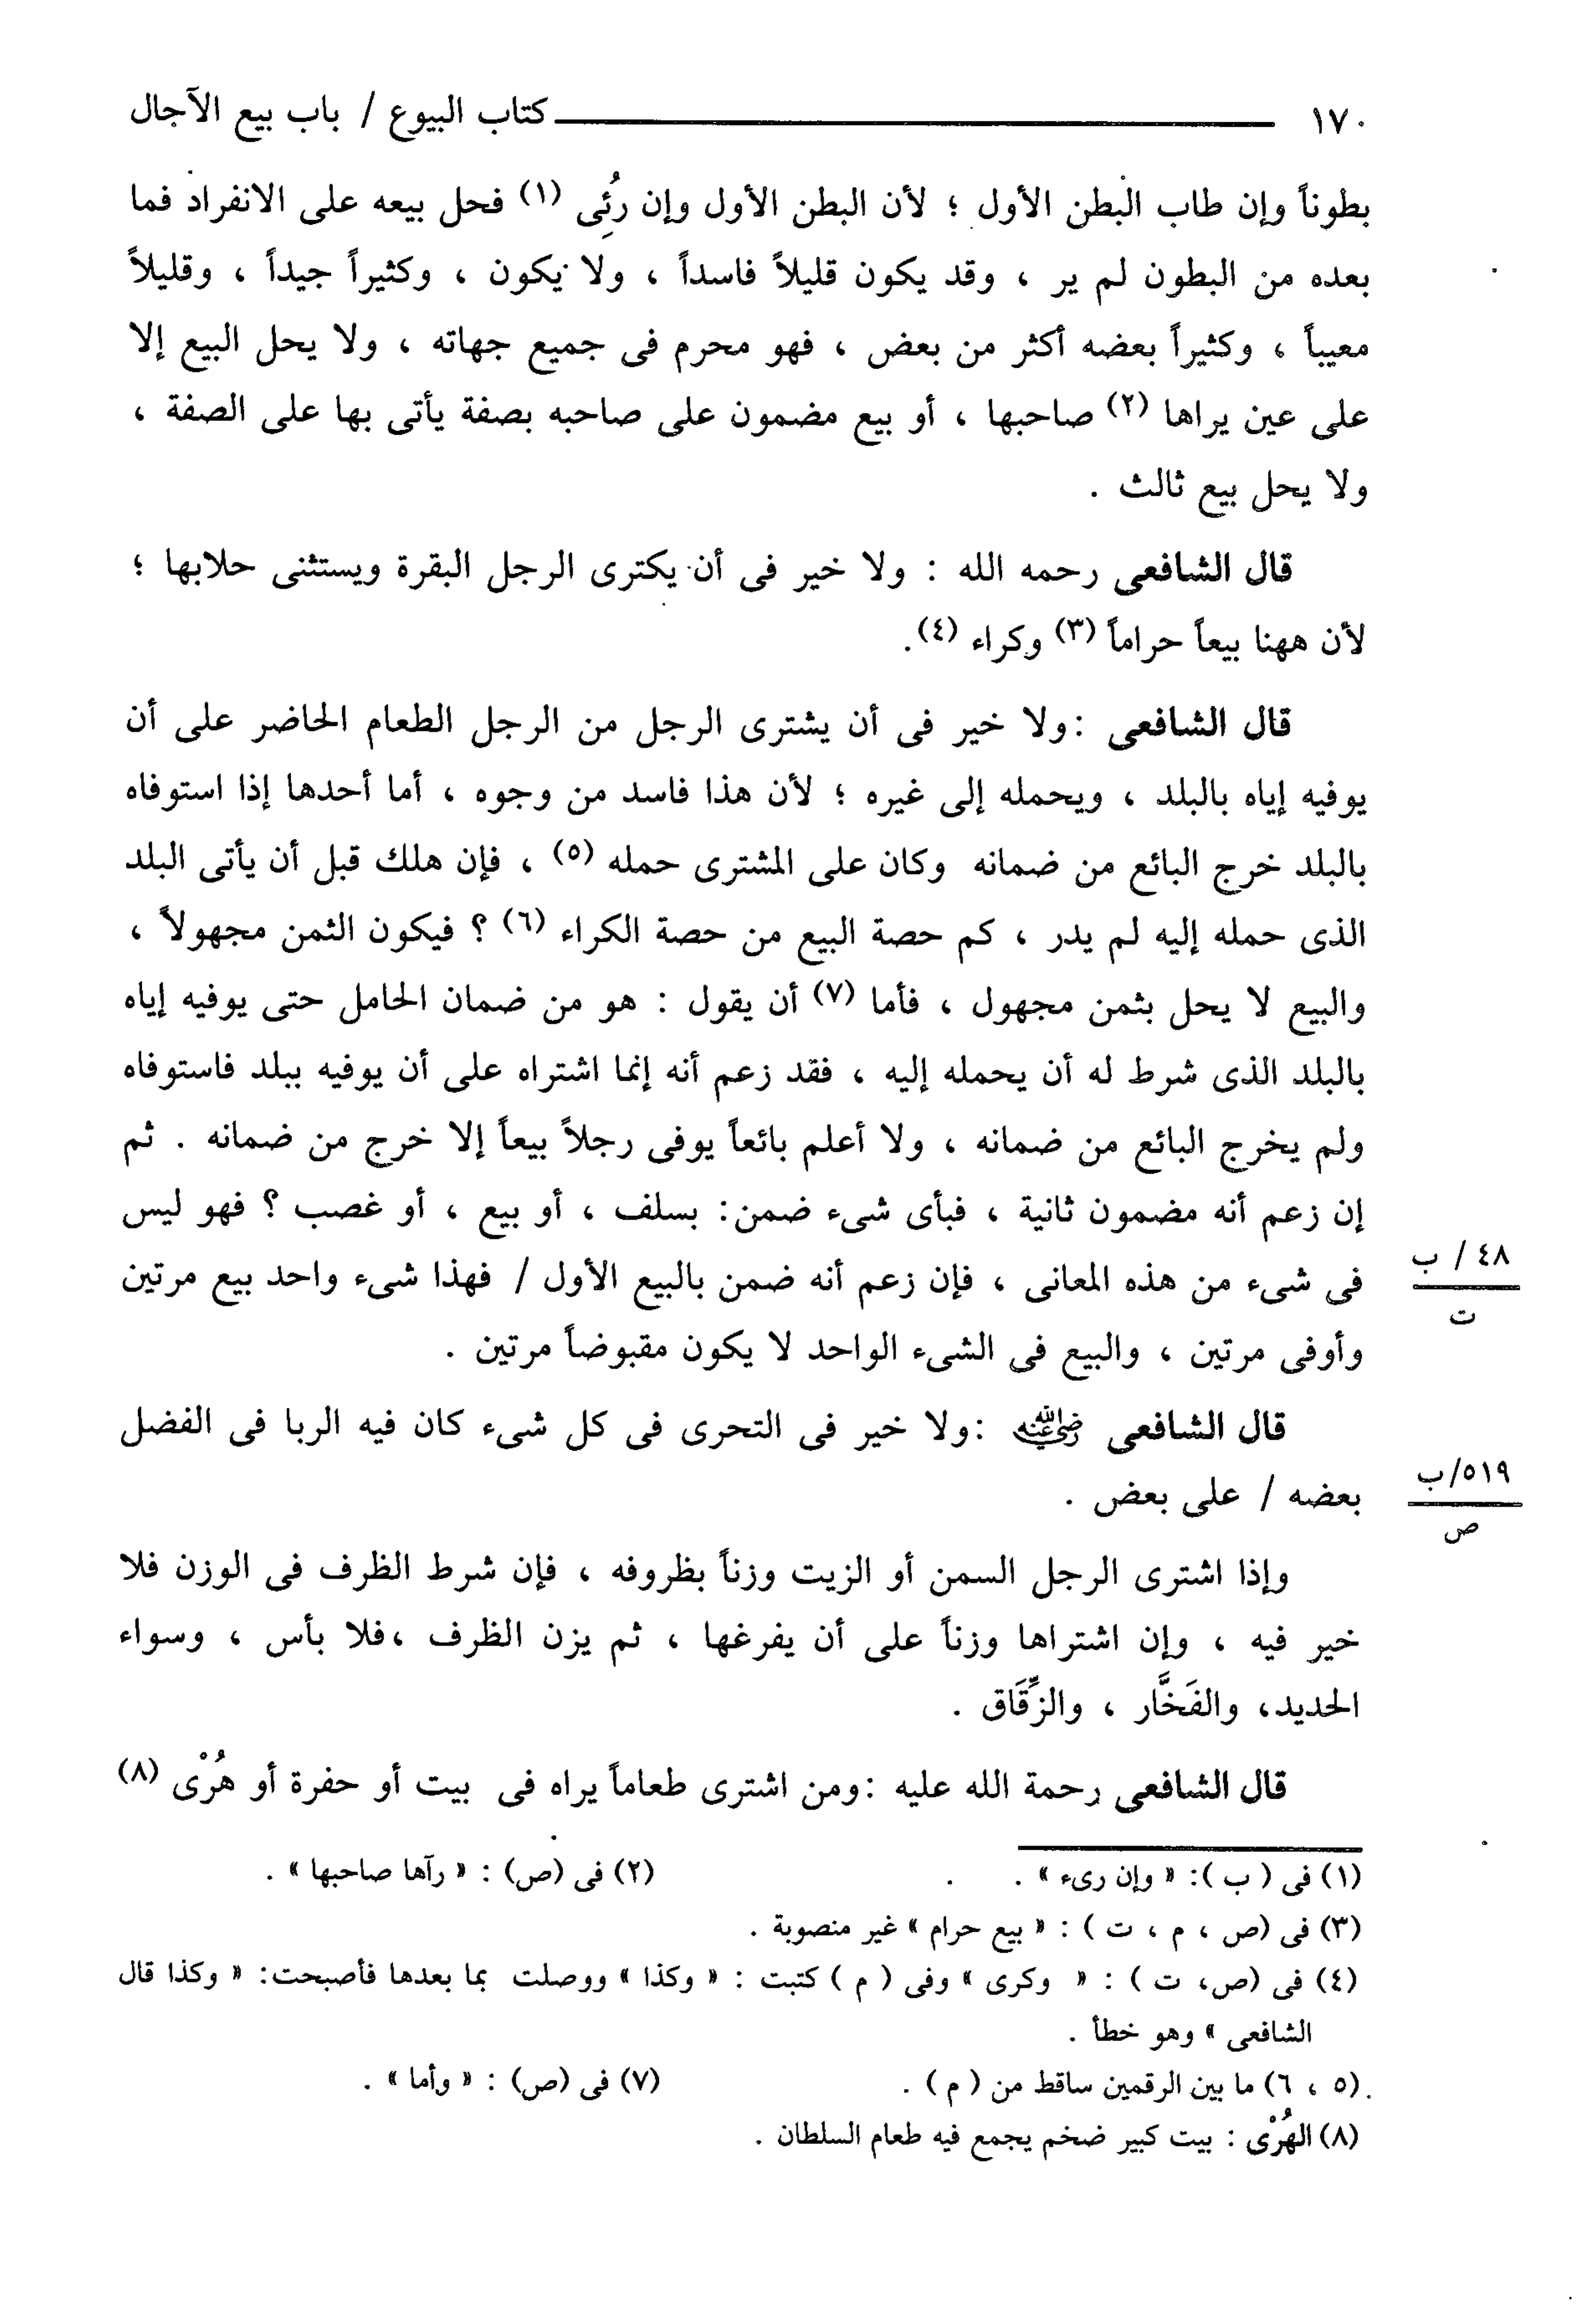 ١٧٠ كتاب البيوع / باب بيع الآجال
بطوناً وإن طاب البطن الأول ؛ لأن البطن الأول وإن رُئِى (١) فحل بيعه على الانفراد فما
بعده من البطون لم ير ، وقد يكون قليلاً فاسداً ، ولا يكون ، وكثيراً جيداً ، وقليلاً
معيباً ، وكثيراً بعضه أكثر من بعض ، فهو محرم فى جميع جهاته ، ولا يحل البيع إلا
على عين يراها (٢) صاحبها ، أو بيع مضمون على صاحبه بصفة يأتى بها على الصفة ،
ولا يحل بيع ثالث .
قال الشافعى رحمه الله : ولا خير فى أن يكترى الرجل البقرة ويستثنى حلابها ؛
لأن ههنا بيعاً حراماً (٣) وكراء (٤).
قال الشافعى :ولا خير فى أن يشترى الرجل من الرجل الطعام الحاضر على أن
يوفيه إياه بالبلد ، ويحمله إلى غيره ؛ لأن هذا فاسد من وجوه ، أما أحدها إذا استوفاه
بالبلد خرج البائع من ضمانه وكان على المشترى حمله (٥) ، فإن هلك قبل أن يأتى البلد
الذى حمله إليه لم يدر ، كم حصة البيع من حصة الكراء (٦) ؟ فيكون الثمن مجهولاً ،
والبيع لا يحل بثمن مجهول ، فأما (٧) أن يقول : هو من ضمان الحامل حتى يوفيه إياه
بالبلد الذى شرط له أن يحمله إليه ، فقد زعم أنه إنما اشتراه على أن يوفيه ببلد فاستوفاه
ولم يخرج البائع من ضمانه ، ولا أعلم بائعاً يوفى رجلاً بيعاً إلا خرج من ضمانه . ثم
إن زعم أنه مضمون ثانية ، فبأى شىء ضمن: بسلف ، أو بيع ، أو غصب ؟ فهو ليس
٤٨ / ب
فى شىء من هذه المعانى ، فإن زعم أنه ضمن بالبيع الأول / فهذا شىء واحد بيع مرتين
ت
وأوفى مرتين ، والبيع فى الشىء الواحد لا يكون مقبوضاً مرتين .
قال الشافعى رضي الله عنه :ولا خير فى التحرى فى كل شىء كان فيه الربا فى الفضل
٥١٩/ب
بعضه / على بعض .
ص
وإذا اشترى الرجل السمن أو الزيت وزناً بظروفه ، فإن شرط الظرف فى الوزن فلا
خير فيه ، وإن اشتراها وزناً على أن يفرغها ، ثم يزن الظرف ،فلا بأس ، وسواء
الحديد، والفَخَّار ، والزِّقَاق .
قال الشافعى رحمة الله عليه :ومن اشترى طعاماً يراه فى بيت أو حفرة أو هُرْى (٨)
(١) فى ( ب ): « وإن رىء » . (٢) فى (ص) : « رآها صاحبها » .
(٣) فى (ص ، م ، ت ) : « بيع حرام » غير منصوبة .
(٤) فى (ص، ت ) : « وكرى » وفى ( م ) كتبت : « وكذا » ووصلت بما بعدها فأصبحت: « وكذا قال
الشافعى » وهو خطأ .
(٥ ، ٦) ما بين الرقمين ساقط من ( م ) . (٧) فى (ص) : « وأما » .
(٨) الهُرْى : بيت كبير ضخم يجمع فيه طعام السلطان .